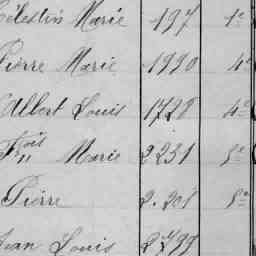 Célestin Marie 197 1e
Pierre Marie 1990 4e
Albert Louis 1728 4e
Fçois Marie 2231 5e
Pierre 2.201 5e
Jean Louis 2799